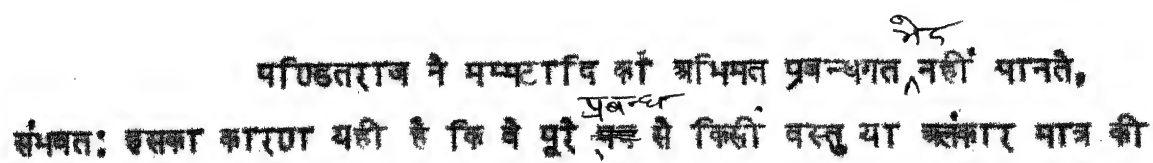 पण्डितराज ने मम्मटादि को अभिमत प्रबन्धगत भेद नहीं मानते,
संभवत: इसका कारण यही है कि वे पूरे प्रबन्ध से किसी वस्तु या अलंकार मात्र की